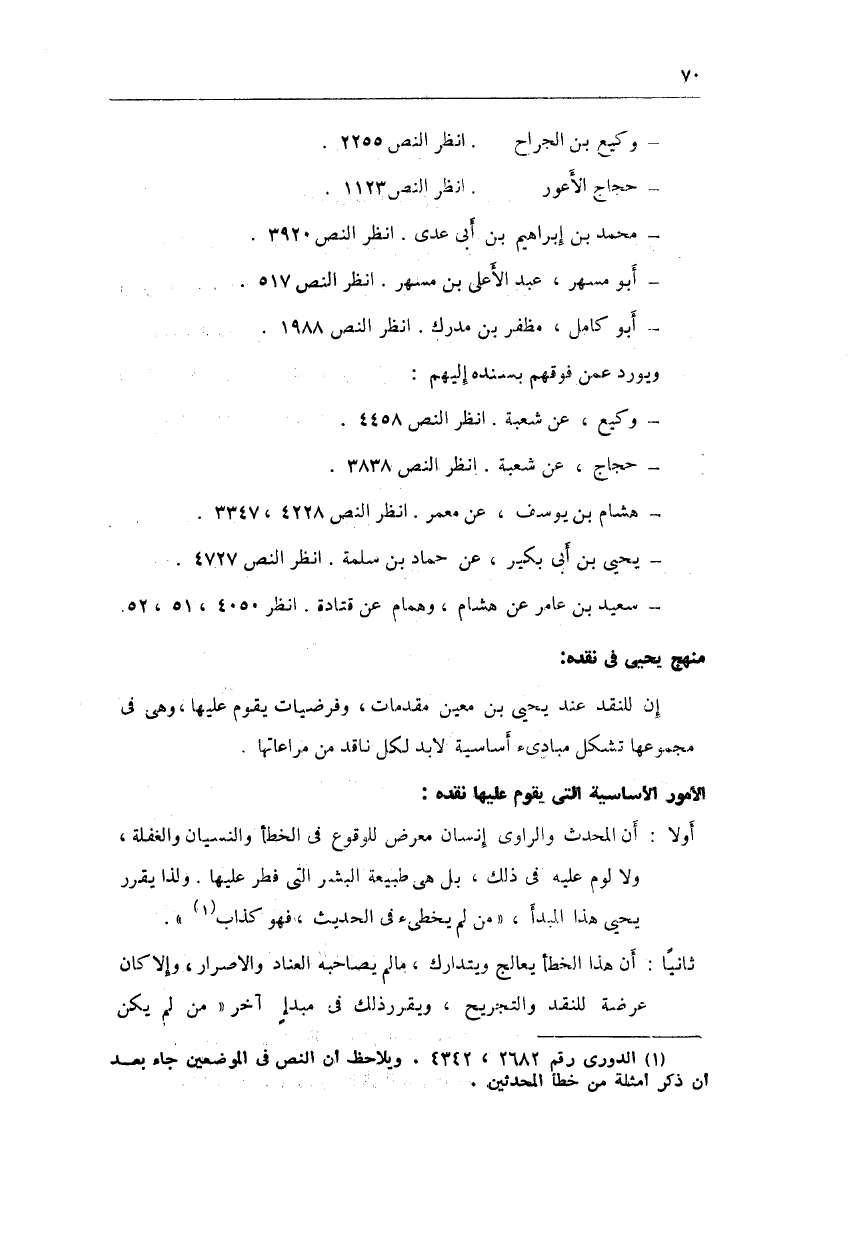 ٧٠
– وكيع بن الجراح . انظر النص ٢٢٥٥ .
– حجاج الأعور . انظر النص ١١٢٣ .
– محمد بن إبراهيم بن أبى عدى . انظر النص ٣٩٢٠ .
– أبو مسهر ، عبد الأعلى بن مسهر . انظر النص ٥١٧ .
– أبو كامل ، مظفر بن مدرك . انظر النص ١٩٨٨ .
ويورد عمن فوقهم بسنده إليهم :
– وكيع ، عن شعبة . انظر النص ٤٤٥٨ .
– حجاج ، عن شعبة . انظر النص ٣٨٣٨ .
– هشام بن يوسف ، عن معمر . انظر النص ٤٢٢٨ ، ٣٣٤٧ .
– يحيى بن أبى بكير ، عن حماد بن سلمة . انظر النص ٤٧٢٧ .
– سعيد بن عامر عن هشام ، وهمام عن قتادة . انظر ٤٠٥٠ ، ٥١ ، ٥٢.
منهج يحيى فى نقده:
إن للنقد عند يحيى بن معين مقدمات ، وفرضيات يقوم عليها ، وهى فى
مجموعها تشكل مبادىء أساسية لابد لكل ناقد من مراعاتها .
الأمور الأساسية التى يقوم عليها نقده :
أولا : أن المحدث والراوى إنسان معرض للوقوع فى الخطأ والنسيان والغفلة ،
ولا لوم عليه فى ذلك ، بل هى طبيعة البشر التى فطر عليها . ولذا يقرر
يحيى هذا المبدأ ، « من لم يخطىء فى الحديث ، فهو كذاب(١) » .
ثانيًا : أن هذا الخطأ يعالج ويتدارك ، مالم يصاحبه العناد والاصرار ، وإلا كان
عرضة للنقد والتجريح ، ويقرر ذلك فى مبدإٍ آخر « من لم يكن
(١) الدورى رقم ٢٦٨٢ ، ٤٣٤٢ . ويلاحظ أن النص فى الموضعين جاء بعد
أن ذكر أمثلة من خطأ المحدثين .